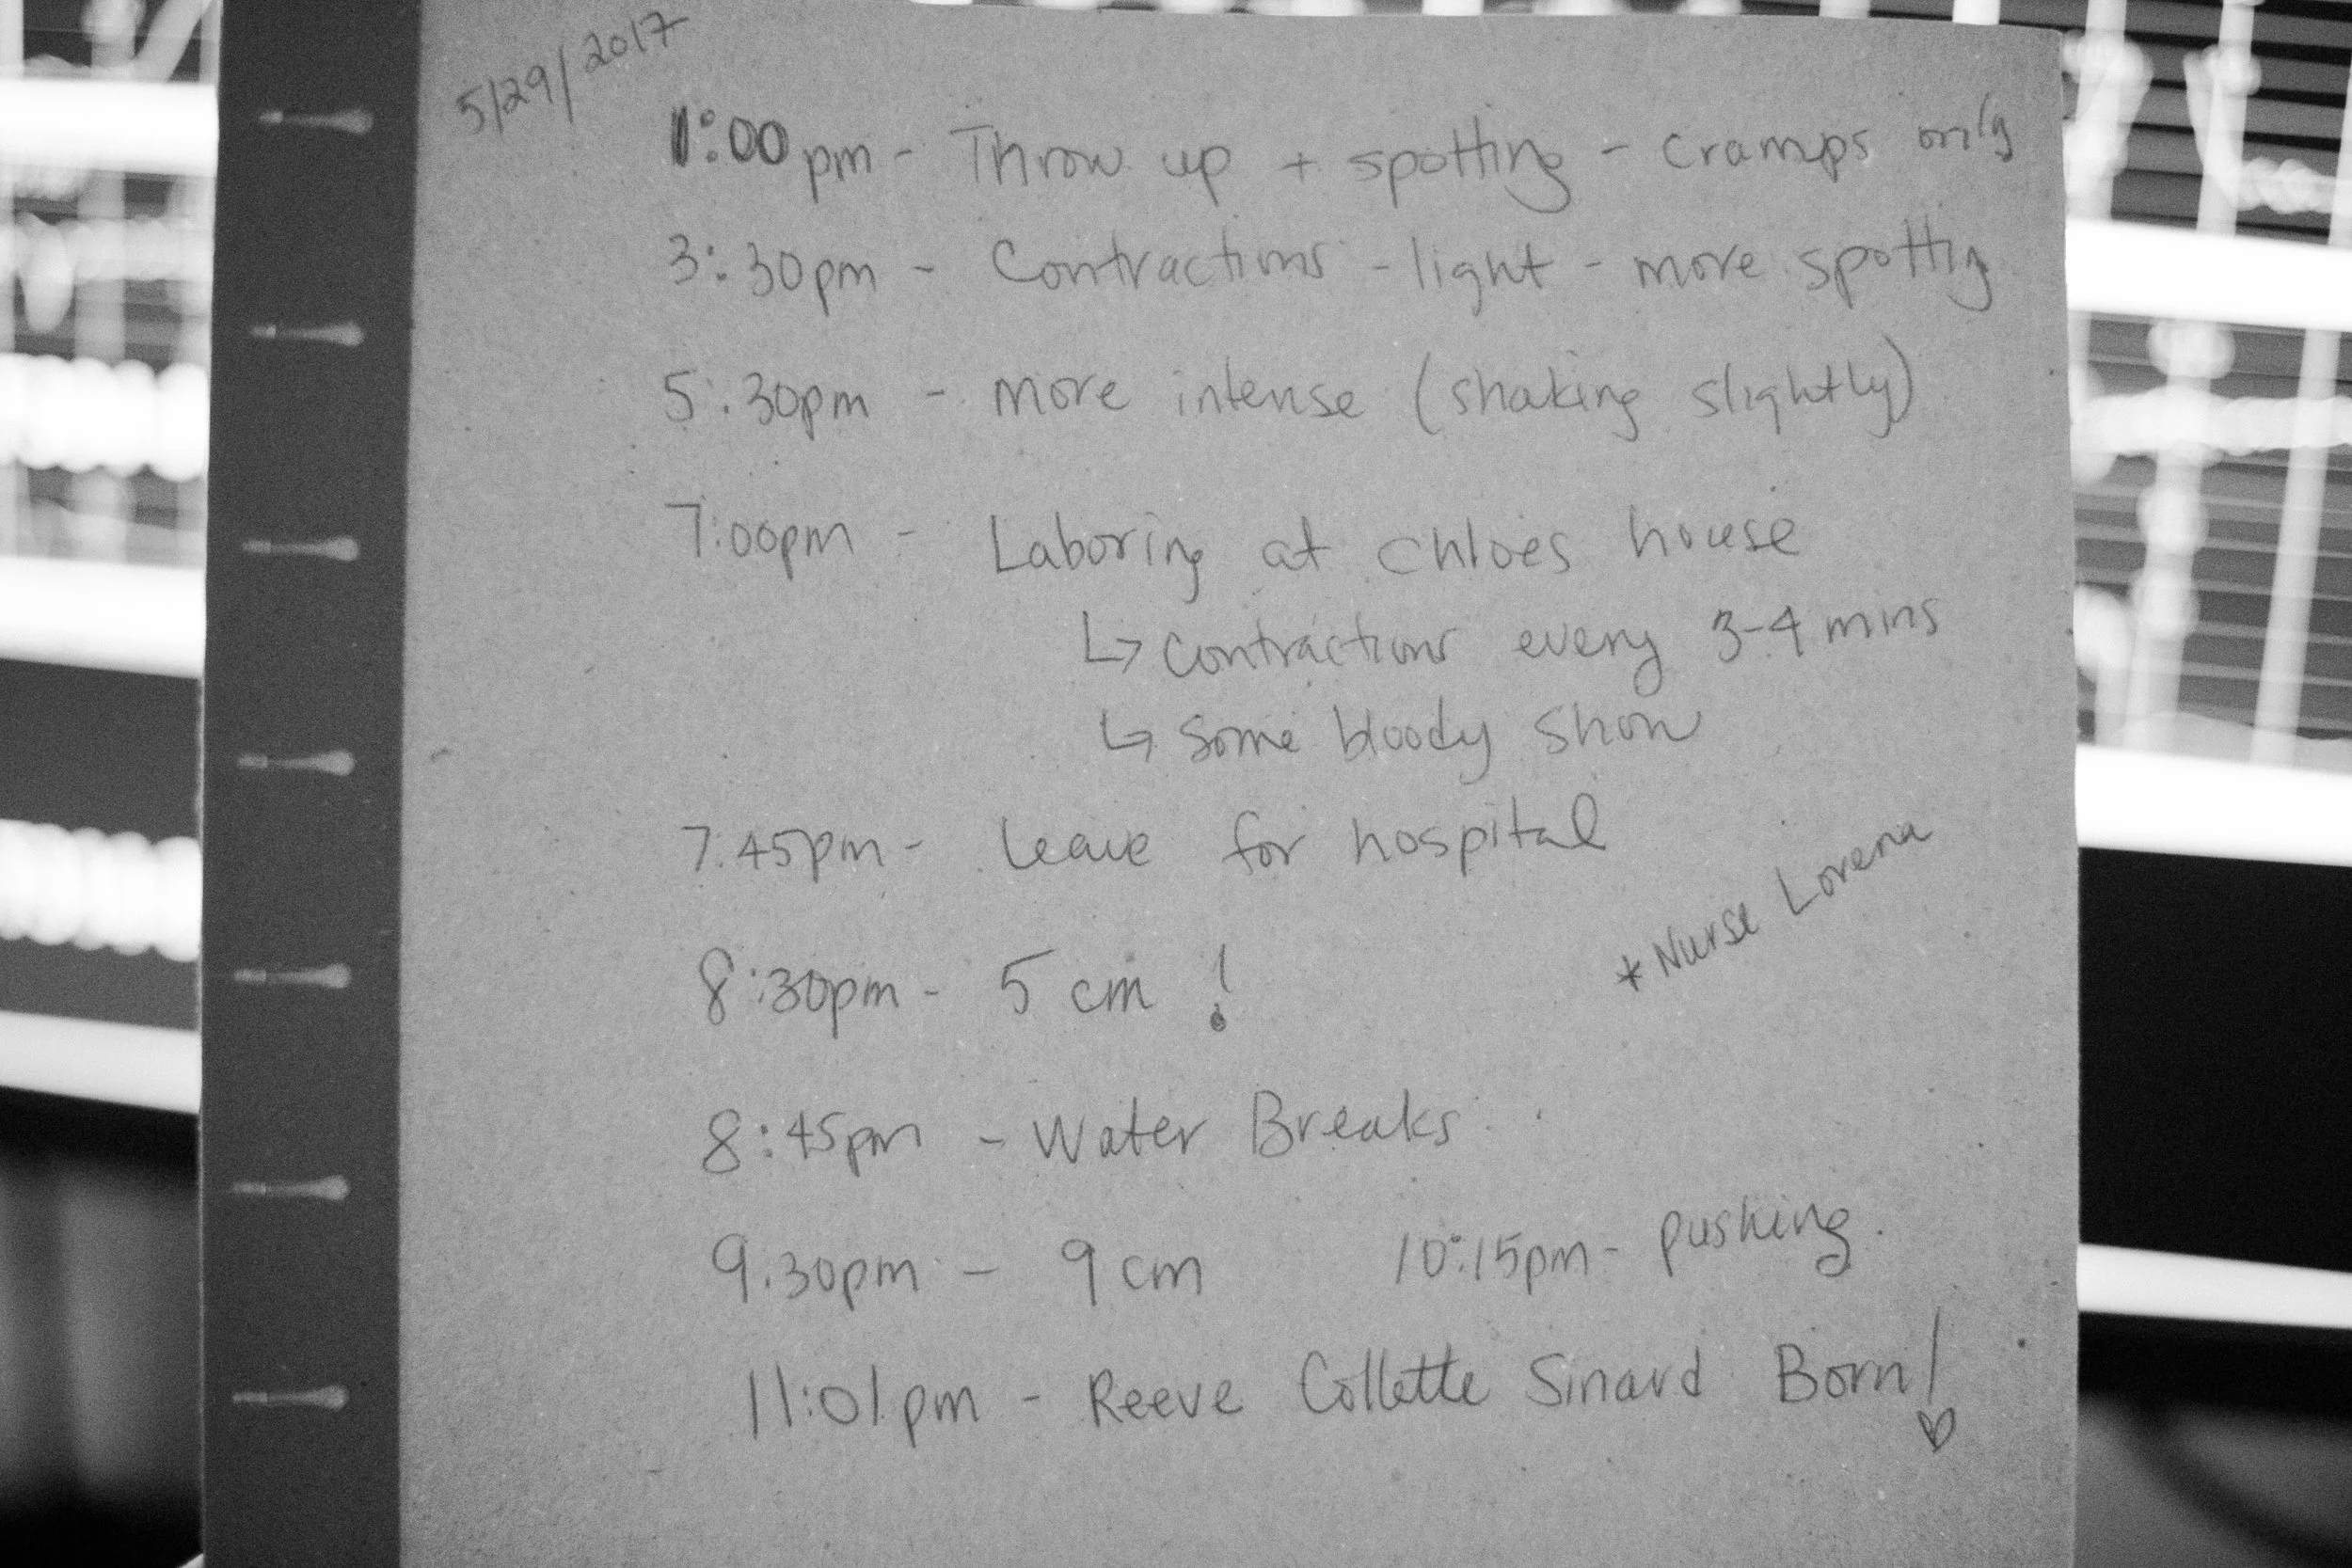 5/29/2017
1:00pm - Throw up + spotting - cramps only
3:30pm - Contractions - light - more spotting
5:30pm - more intense (shaking slightly)
7:00pm - Laboring at Chloes house
↳ contractions every 3-4 mins
↳ some bloody show
7:45pm - leave for hospital
* Nurse Lorena
8:30pm - 5 cm !
8:45pm - Water Breaks
9:30pm - 9 cm 10:15pm - pushing.
11:01pm - Reeve Collette Sinard Born! ♡